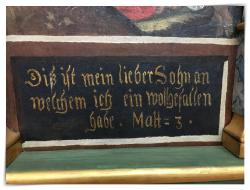 Diß ist mein lieber Sohn an
welchem ich ein wollgefallen
habe. Matt = 3.